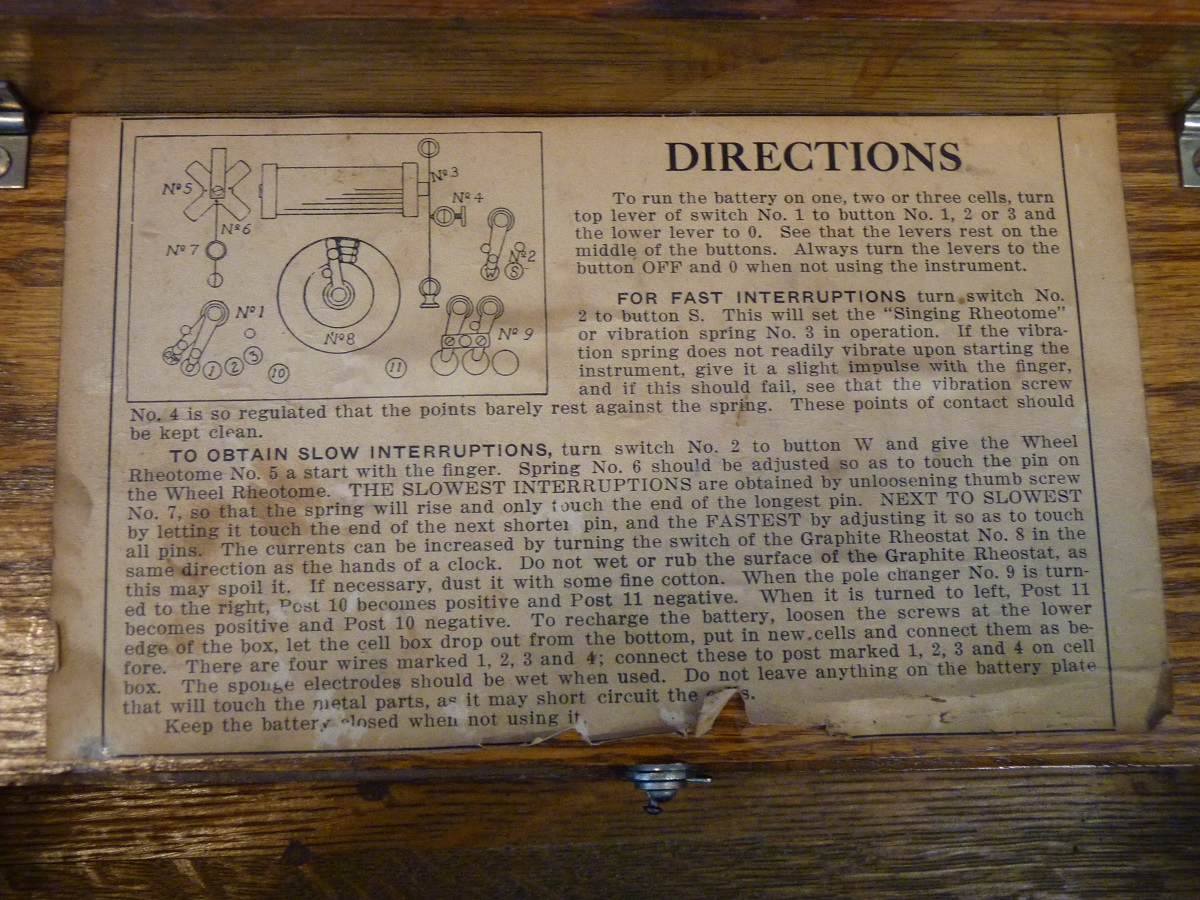 DIRECTIONS
To run the battery on one, two or three cells, turn
top lever of switch No. 1 to button No. 1, 2 or 3 and
the lower lever to 0. See that the levers rest on the
middle of the buttons. Always turn the levers to the
button OFF and 0 when not using the instrument.
FOR FAST INTERRUPTIONS turn switch No.
2 to button S. This will set the “Singing Rheotome”
or vibration spring No. 3 in operation. If the vibra-
tion spring does not readily vibrate upon starting the
instrument, give it a slight impulse with the finger,
and if this should fail, see that the vibration screw
No. 4 is so regulated that the points barely rest against the spring. These points of contact should
be kept clean.
TO OBTAIN SLOW INTERRUPTIONS, turn switch No. 2 to button W and give the Wheel
Rheotome No. 5 a start with the finger. Spring No. 6 should be adjusted so as to touch the pin on
the Wheel Rheotome. THE SLOWEST INTERRUPTIONS are obtained by unloosening thumb screw
No. 7, so that the spring will rise and only touch the end of the longest pin. NEXT TO SLOWEST
by letting it touch the end of the next shorter pin, and the FASTEST by adjusting it so as to touch
all pins. The currents can be increased by turning the switch of the Graphite Rheostat No. 8 in the
same direction as the hands of a clock. Do not wet or rub the surface of the Graphite Rheostat, as
this may spoil it. If necessary, dust it with some fine cotton. When the pole changer No. 9 is turn-
ed to the right, Post 10 becomes positive and Post 11 negative. When it is turned to left, Post 11
becomes positive and Post 10 negative. To recharge the battery, loosen the screws at the lower
edge of the box, let the cell box drop out from the bottom, put in new cells and connect them as be-
fore. There are four wires marked 1, 2, 3 and 4; connect these to post marked 1, 2, 3 and 4 on cell
box. The sponge electrodes should be wet when used. Do not leave anything on the battery plate
that will touch the metal parts, as it may short circuit the
Keep the battery closed when not using it.
Nº 5
Nº 3
Nº 4
Nº 6
Nº 7
Nº 2
W
S
Nº 1
Nº 8
Nº 9
1
2
3
10
11